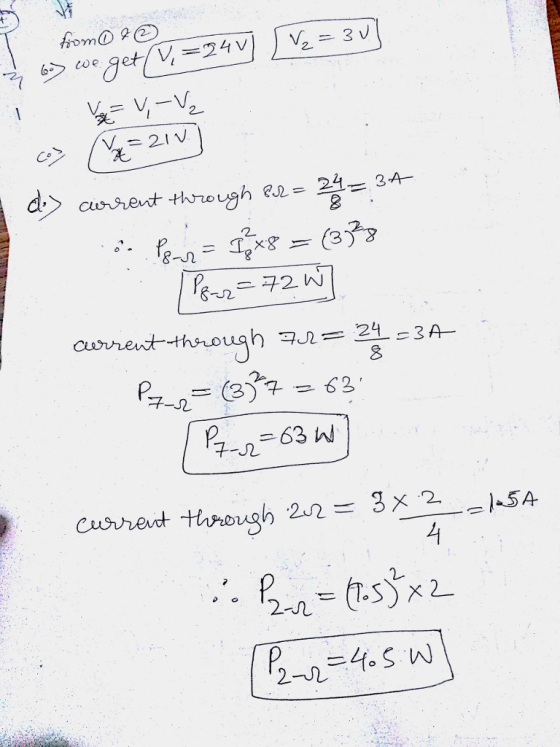 from ① & ②
b.> we get V₁ = 24V V₂ = 3V
Vx = V₁ - V₂
c.> Vx = 21V
d.> current through 8Ω = 24/8 = 3A
∴ P8-Ω = I₈² × 8 = (3)² 8
P8-Ω = 72 W
current through 7Ω = 24/8 = 3A
P7-Ω = (3)² 7 = 63
P7-Ω = 63 W
current through 2Ω = 3 × 2/4 = 1.5A
∴ P2-Ω = (1.5)² × 2
P2-Ω = 4.5 W